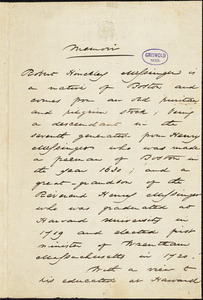 Memoir
GRISWOLD
MSS.
Robert Hinckley Messinger is
a native of Boston and
comes from an old puritan
and pilgrim stock; being
a descendant in the
seventh generation from Henry
Messinger who was made
a freeman of Boston in
the year 1630; and a
great-grandson of the
Reverend Henry Messinger
who was graduated at
Harvard University in
1719 and elected first
minister of Wrentham
Massachusetts in 1720.
With a view to
his educated at Harvard